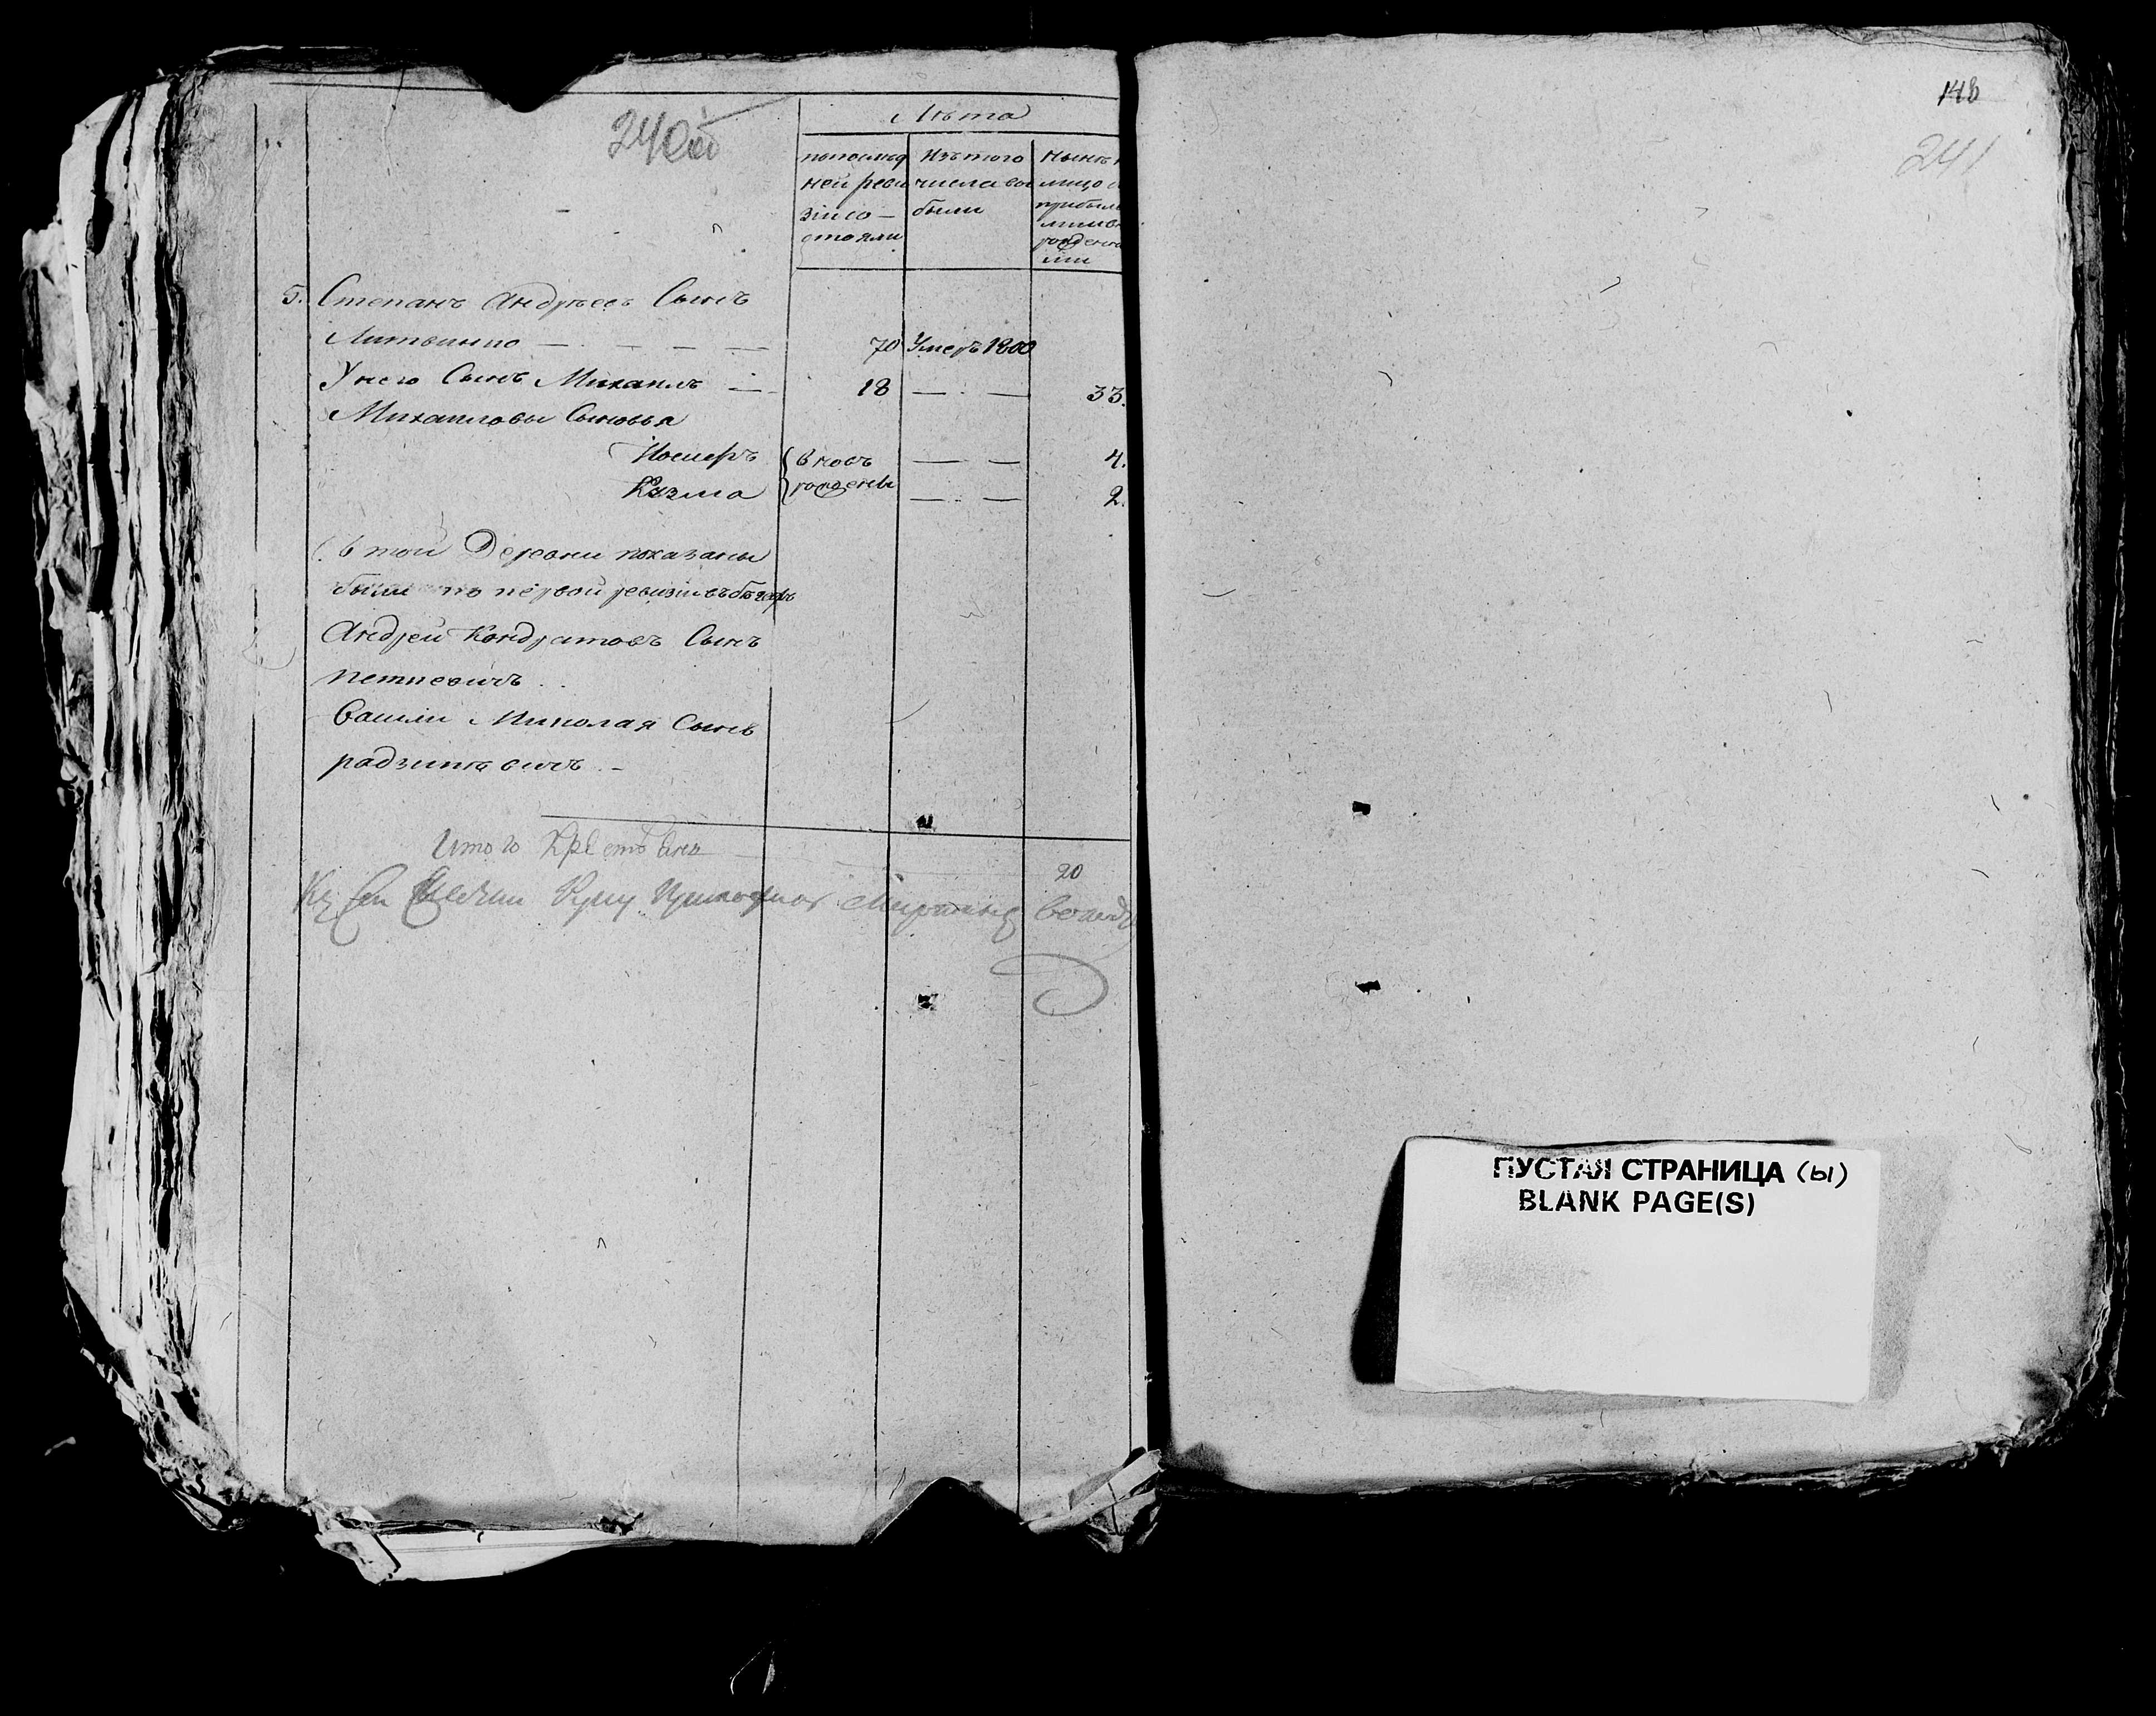 240об
Лѣта
попослѣд
ней реви
зіи со —
стояли
Изъ того
числа вы
были
Нынѣ н
лицо и
прибыв
рожденны
5. Степанъ Андреевъ Сынъ
Литвинко — — — — 70 Умеръ 1800
У него Сынъ Михаилъ — 18 — — 33.
Михаиловы Сыновья
вновь — — 4.
Казма рождены — — 2.
В той Деревни показаны
были по первой ревизіи въ бегахъ
Андрей Кондратовъ Сынъ
Петкевичъ . .
Васили Миколая Сынъ
радзинкевичъ . –
Итого Крестьянъ 20
148
241
ПУСТАЯ СТРАНИЦА (ы)
BLANK PAGE(S)